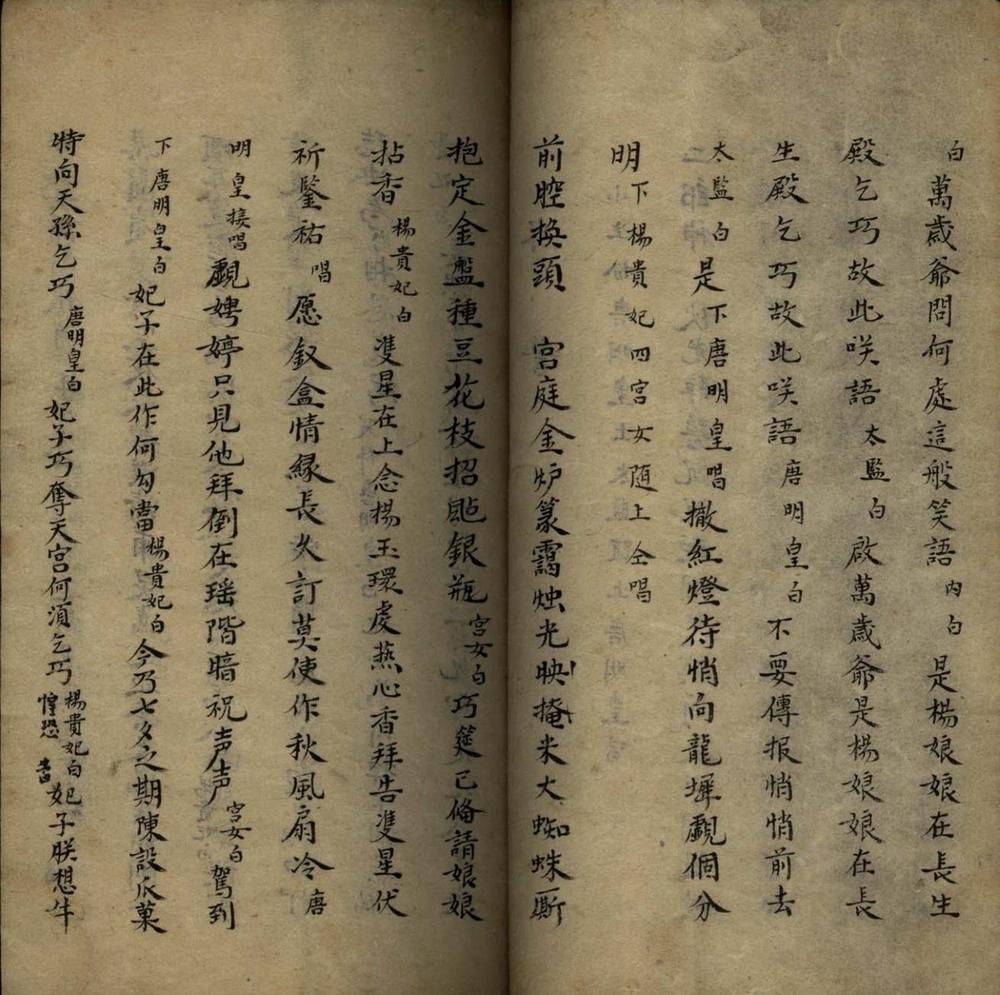 白萬歲爺問何處這般笑語内白是楊娘娘在長生
殿乞巧故此咲語太監白啟萬歲爺是楊娘娘在長
生殿乞巧故此咲語唐明皇白不要傳报悄悄前去
太監白是下唐明皇唱撤紅燈待悄向龍墀覷個分
明下楊貴妃四宮女随上仝唱
前腔換頭 宫庭金炉篆靄烛光映掩米大蜘蛛厮
抱定金盤種豆花枝招颭銀瓶宫女白巧筵已俻請娘娘
拈香楊貴妃白䨇星在上念楊玉環虔爇心香拜告䨇星伏
祈鍳祐唱愿釵盒情縁長久訂莫使作秋風扇冷唐
明皇接唱覷娉婷只見他拜倒在瑶階暗祝声声宫女白駕到
下唐明皇白妃子在此作何勾當楊貴妃白今乃七夕之期陳設瓜菓
特向天孫乞巧唐明皇白妃子巧奪天宫何湏乞巧楊貴妃白惶恐妃子朕想牛